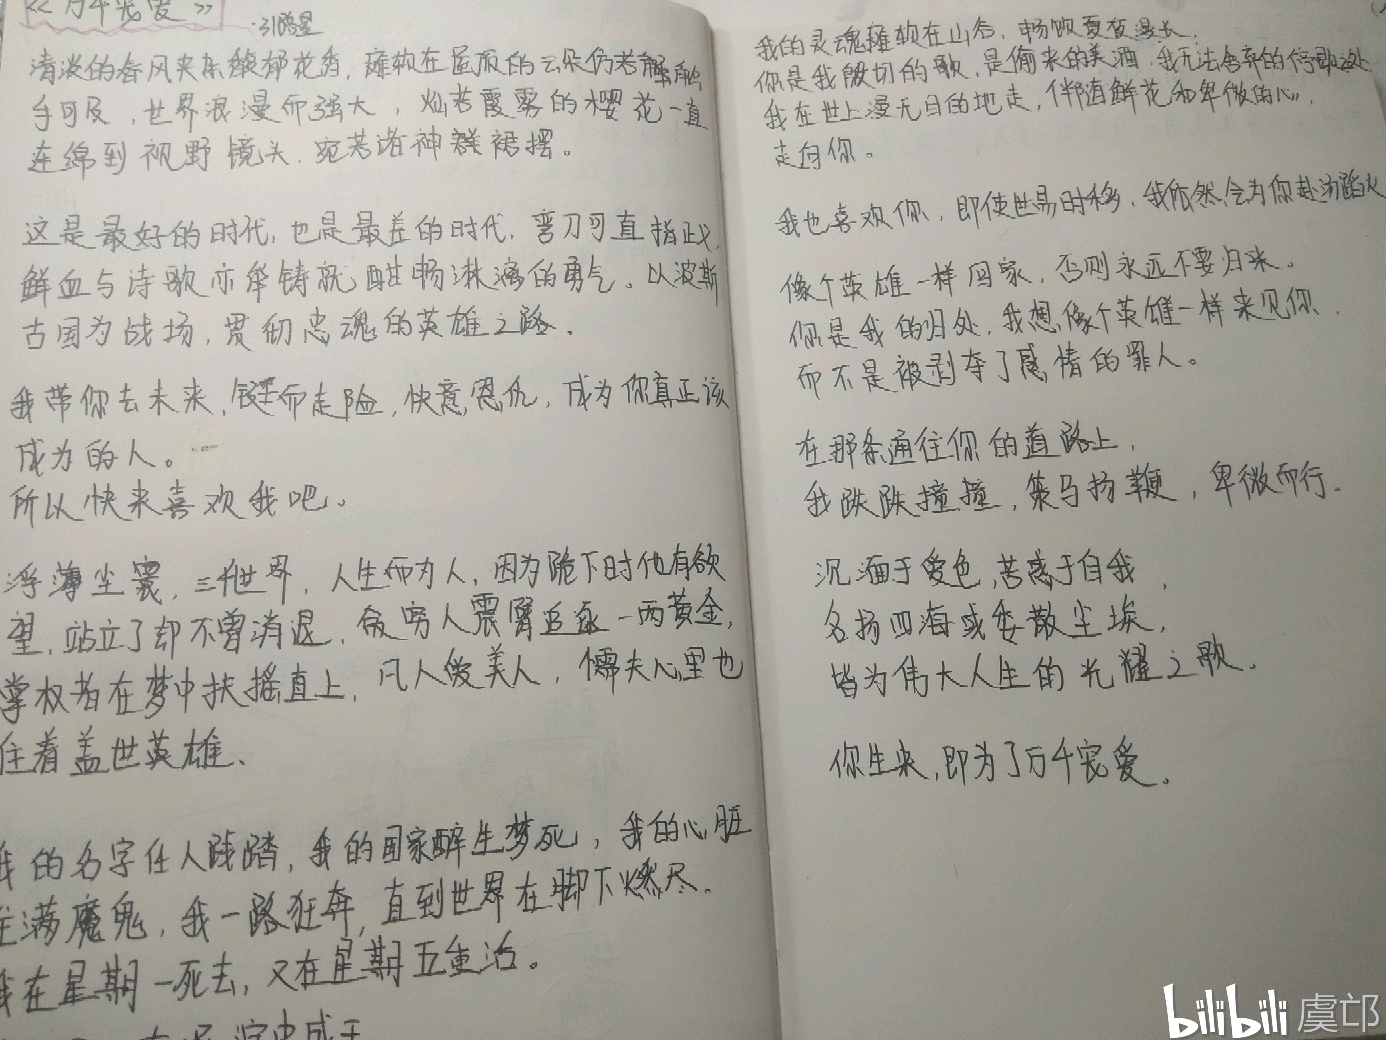 《万千宠爱》
·引路星
清淡的春风夹杂馥郁花香，瘫软在蓝质的云朵仿若触
手可及，世界浪漫而强大，灿若霞雾的樱花一直
连绵到视野镜头，宛若诸神裙摆。
这是最好的时代，也是最差的时代，弯刀可直指战，
鲜血与诗歌亦牟铸就酣畅淋漓的勇气。以波斯
古国为战场，贯彻忠魂的英雄之路。
我带你去未来，铤而走险，快意恩仇，成为你真正该
成为的人。
所以快来喜欢我吧。
浮薄尘寰，三千世界，人生而为人，因为跪下时他有欲
望，站立了却不曾消退，食穷人震臂追逐一两黄金，
掌权者在梦中扶摇直上，凡人爱美人，懦夫心里也
住着盖世英雄、
我的名字任人践踏，我的国家醉生梦死，我的心脏
住满魔鬼，我一路狂奔，直到世界在脚下燃尽。
我在星期一死去，又在星期五重活。
我的灵魂瘫软在山谷，畅饮夏夜漫长，
你是我殷切的歌，是偷来的美酒，我无法舍弃的停歇之处
我在世上漫无目的地走，伴随鲜花和卑微的心，
走向你。
我也喜欢你，即使世易时移，我依然会为你赴汤蹈火
像个英雄一样回家，否则永远不要归来。
你是我的归处，我想像个英雄一样来见你，
而不是被剥夺了感情的罪人。
在那条通往你的道路上，
我跌跌撞撞，策马扬鞭，卑微而行。
沉湎于爱色，苦惑于自我，
名扬四海或委散尘埃，
皆为伟大人生的光耀之歌。
你生来，即为了万千宠爱。
bilibili 虞邙